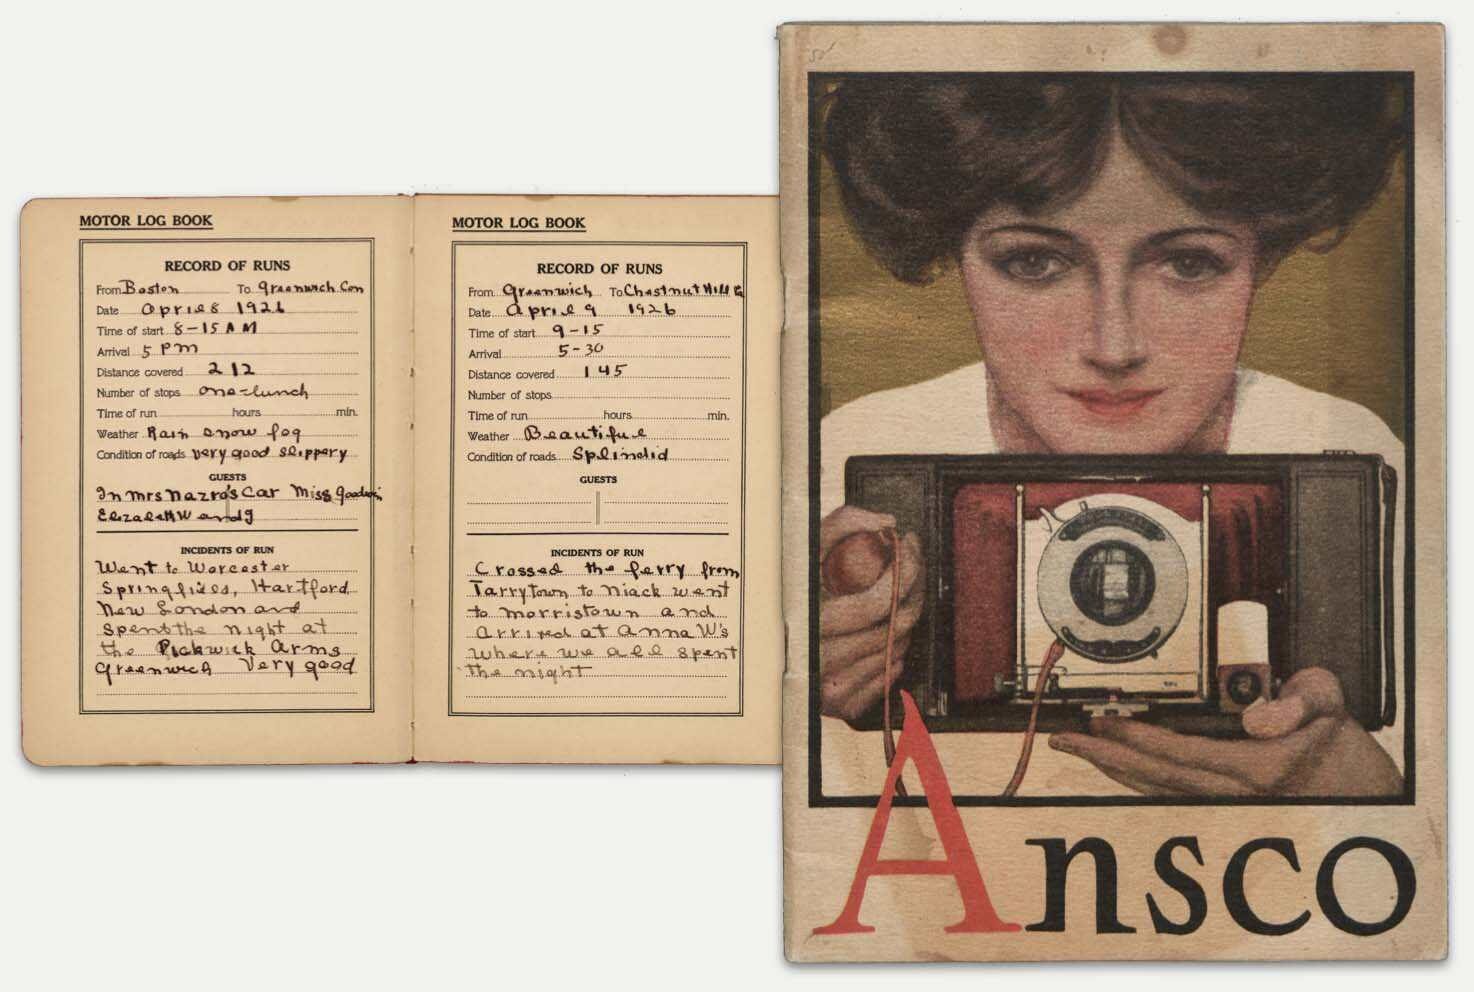 MOTOR LOG BOOK
RECORD OF RUNS
From Boston To Greenwich Con
Date April 8 1926
Time of start 8-15 AM
Arrival 5 PM
Distance covered 212
Number of stops one-lunch
Time of run hours min.
Weather Rain snow fog
Condition of roads very good slippery
GUESTS
In Mrs Nazro's Car Miss Goodwin
Elizabeth W and
INCIDENTS OF RUN
Went to Worcester
Springfield, Hartford
New London and
spent the night at
the Pickwick Arms
Greenwich Very good
MOTOR LOG BOOK
RECORD OF RUNS
From Greenwich To Chestnut Hill
Date April 9 1926
Time of start 9-15
Arrival 5-30
Distance covered 145
Number of stops
Time of run hours min.
Weather Beautiful
Condition of roads Splindid
GUESTS
INCIDENTS OF RUN
Crossed the ferry from
Tarrytown to Niack went
to Morristown and
Arrived at Anna W's
where we all spent
the night
Ansco